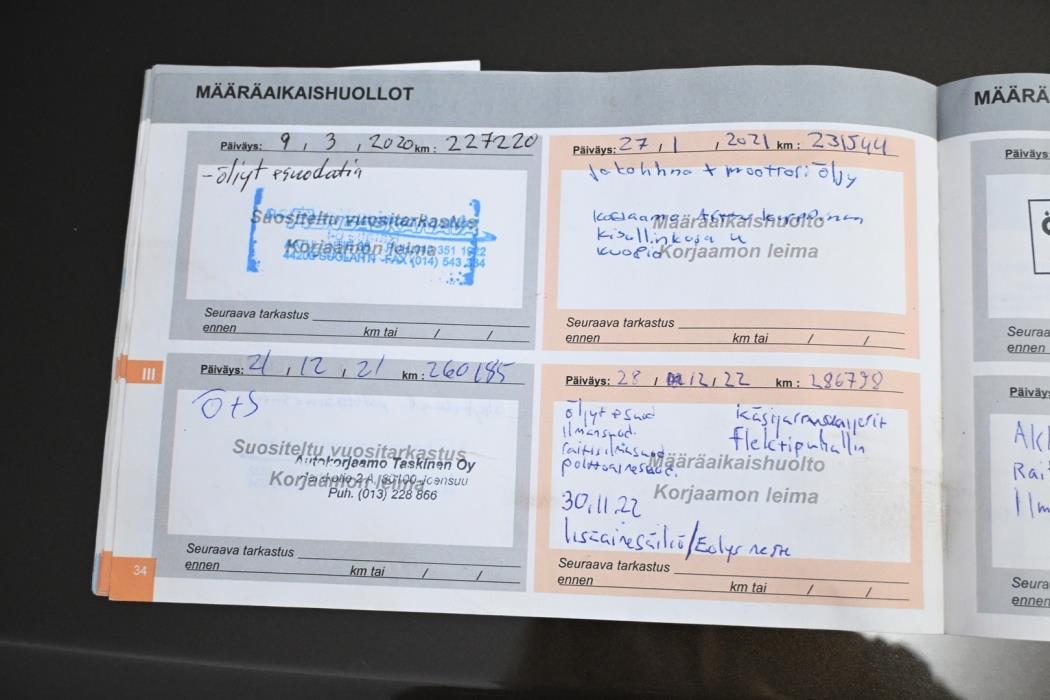 MÄÄRÄAIKAISHUOLLOT
Päiväys: 9 , 3 , 2020 km : 227220
- öljyt esuodatin
Suositeltu vuositarkastus
Korjaamon leima
351 1922
44200 SUOLAHTI - FAX (014) 543
Seuraava tarkastus
ennen km tai / /
Päiväys: 27 , 1 , 2021 km : 231544
Jakohihna + moottori öljy
Määräaikaishuolto
Korjaamon leima
Seuraava tarkastus
ennen km tai / /
III
Päiväys: 21 , 12 , 21 km : 260185
Ö+S
Suositeltu vuositarkastus
Autokorjaamo Taskinen Oy
Korjaamon leima
80100 Joensuu
Puh. (013) 228 866
Seuraava tarkastus
ennen km tai / /
Päiväys: 28 / 12 , 22 km : 286798
öljyt esuod
ilmansuod.
raitisilmasuod
polttoainesuod.
käsijarrunvaijerit
Määräaikaishuolto
Korjaamon leima
30.11.22
lisäainesäiliö/Eolys neste
Seuraava tarkastus
ennen km tai / /
34
MÄÄRÄ
Päiväys:
Seuraa
ennen
Päiväys
Rai
Ilm
Seura
ennen